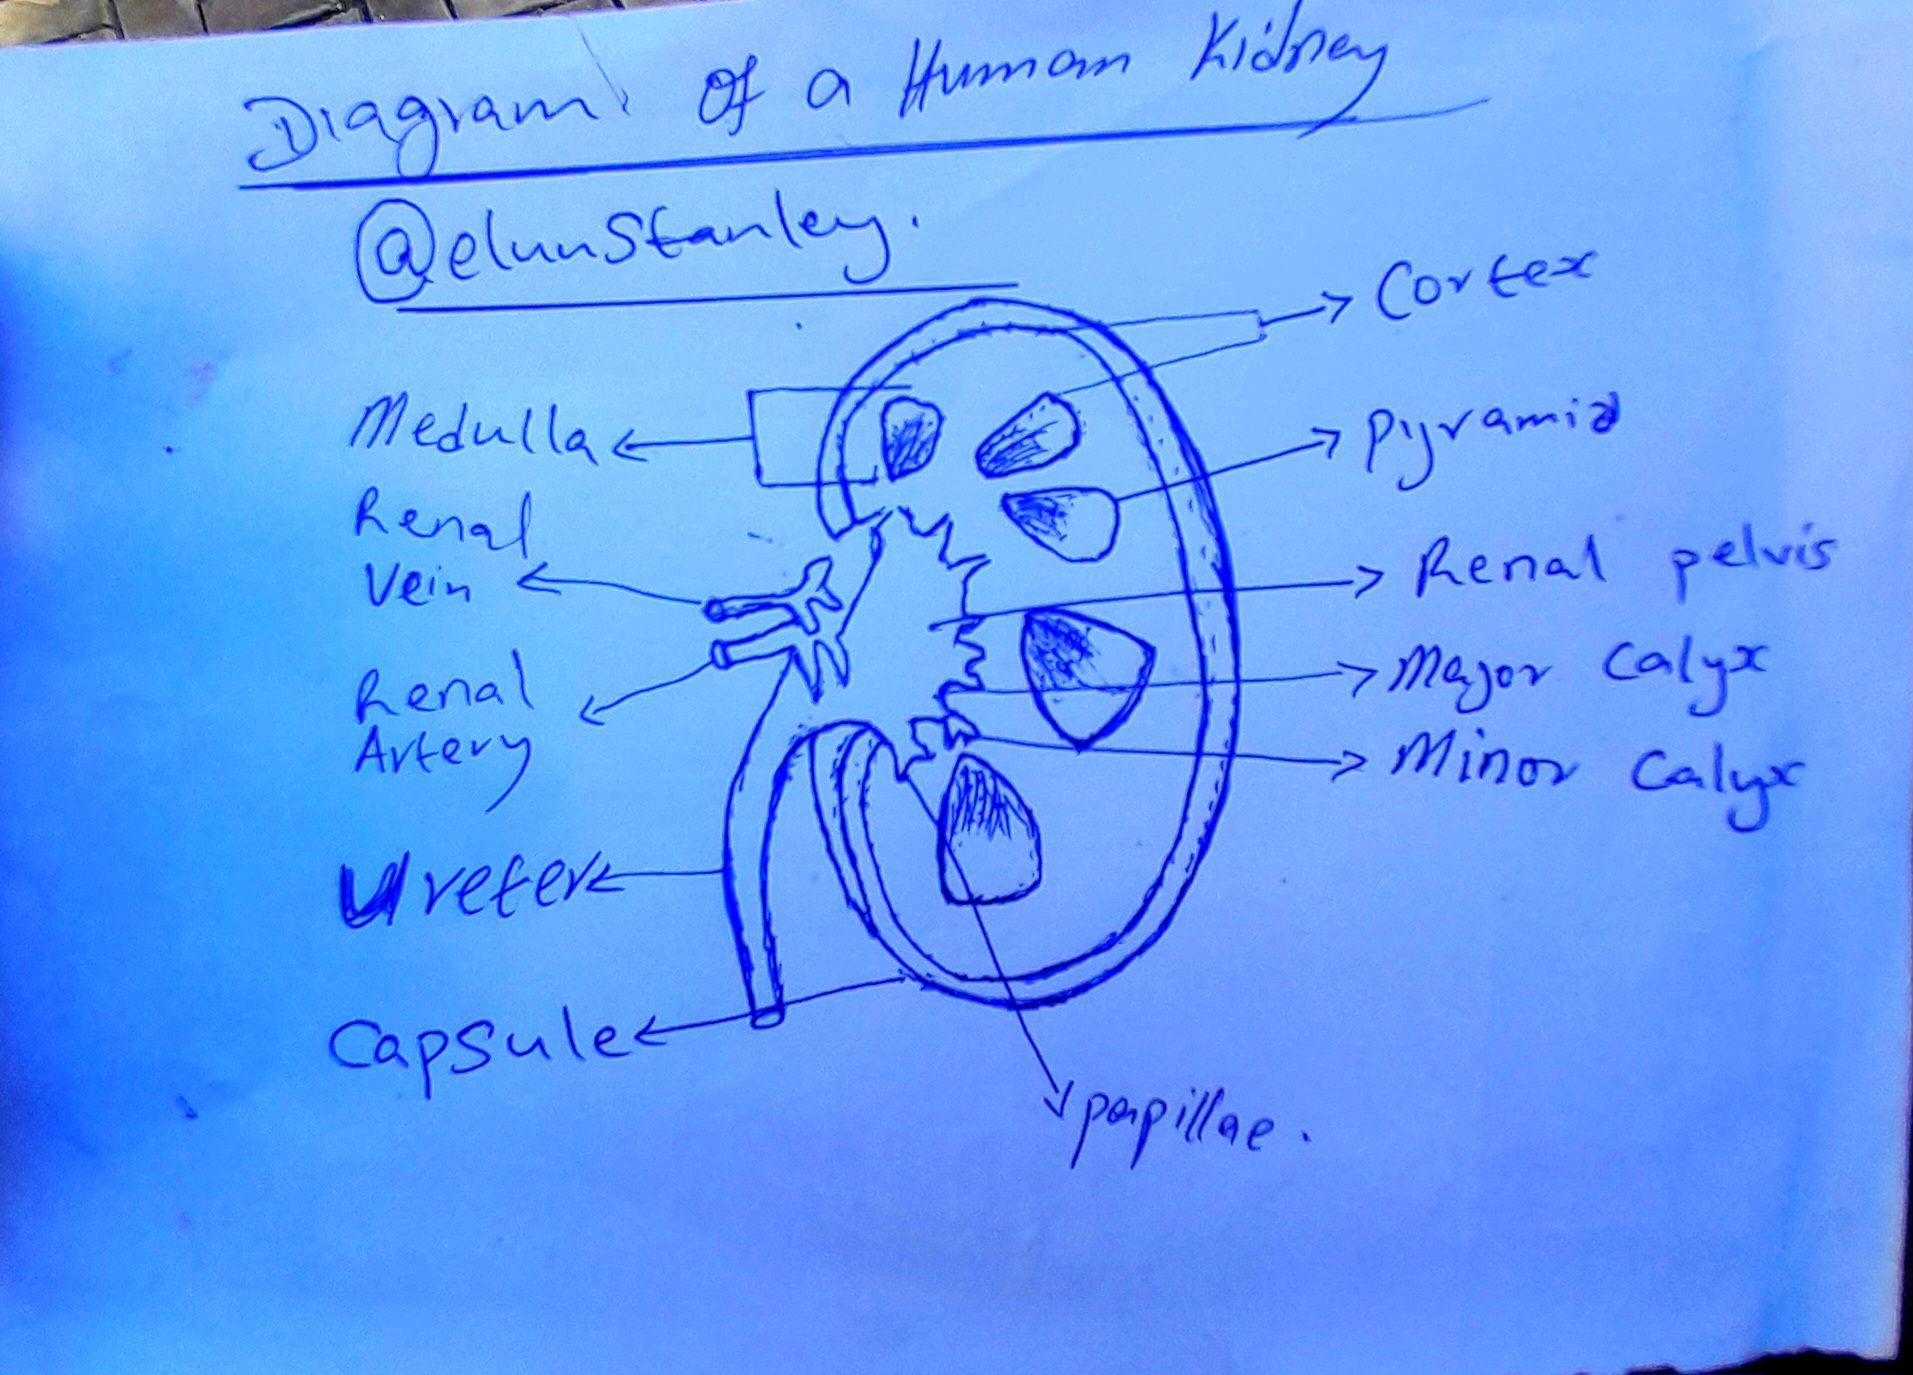 Diagram of a Human Kidney
@elunstanley.
Cortex
Medulla
pyramid
Renal
Vein
Renal pelvis
Renal
Artery
Major Calyx
Minor Calyx
Ureter
Capsule
papillae.